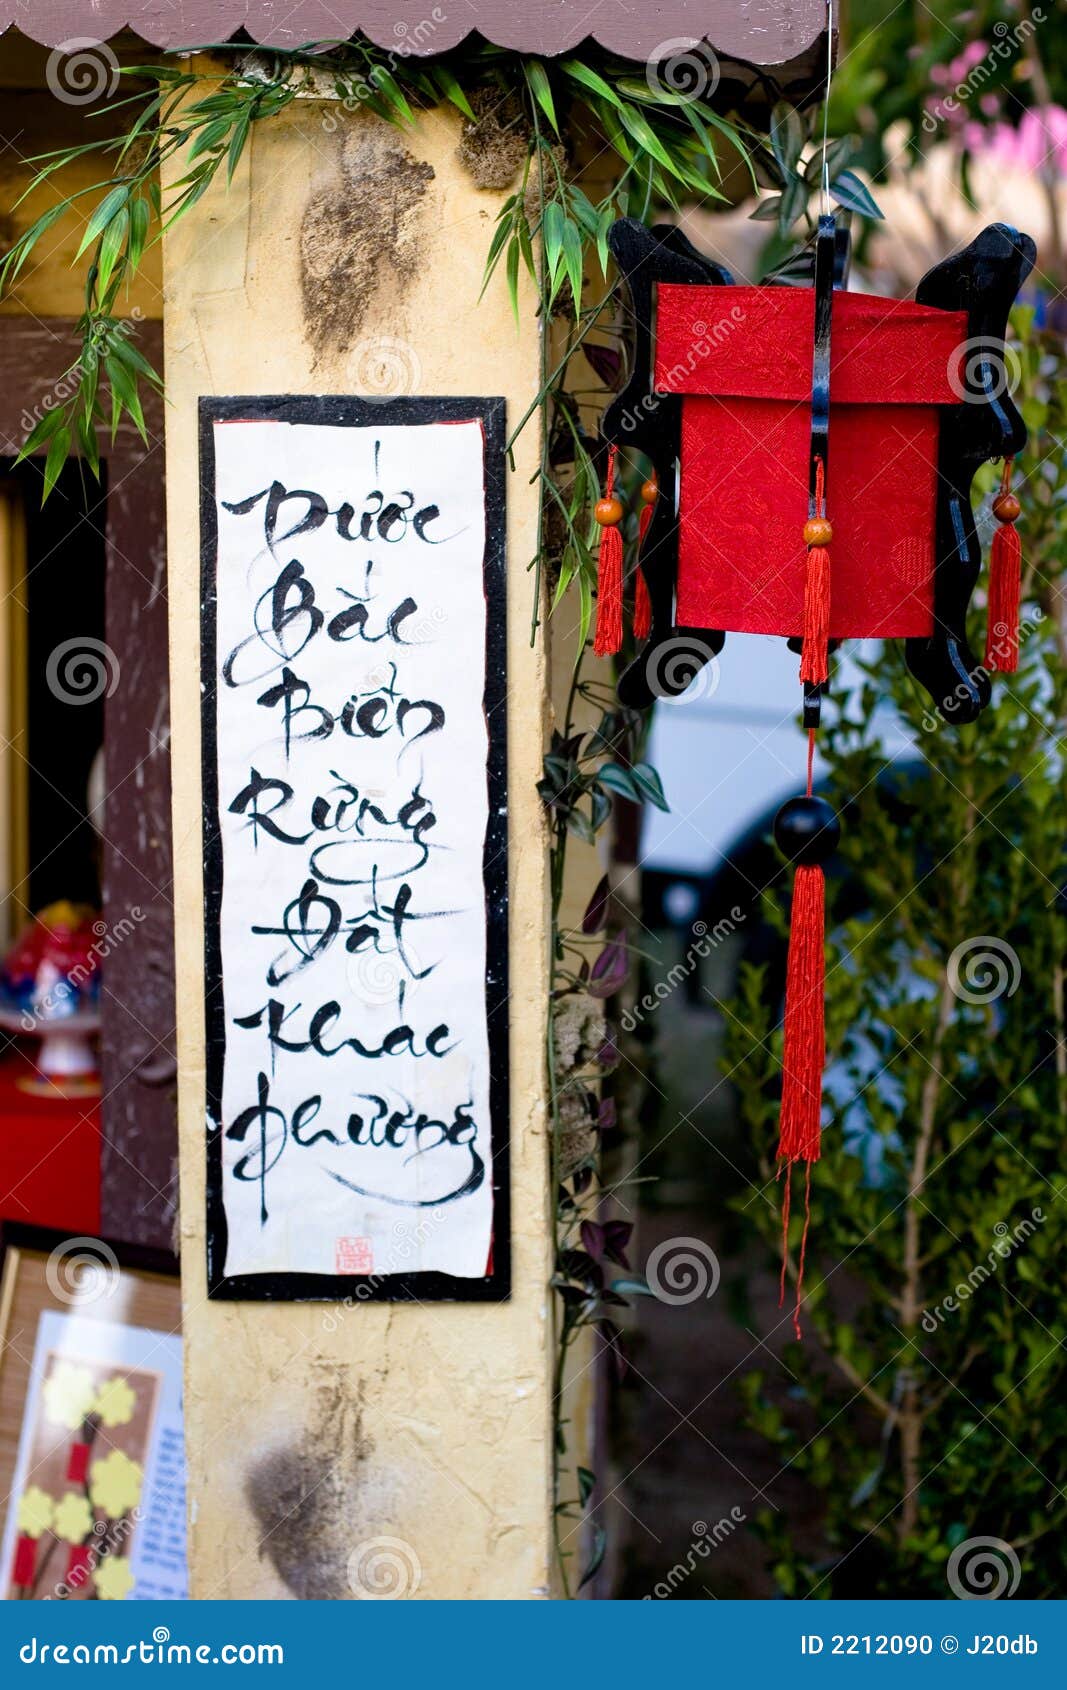 Dước
Bắc
Biển
Rừng
Đất
Khác
Phương
dreamstime.com
ID 2212090 © J20db